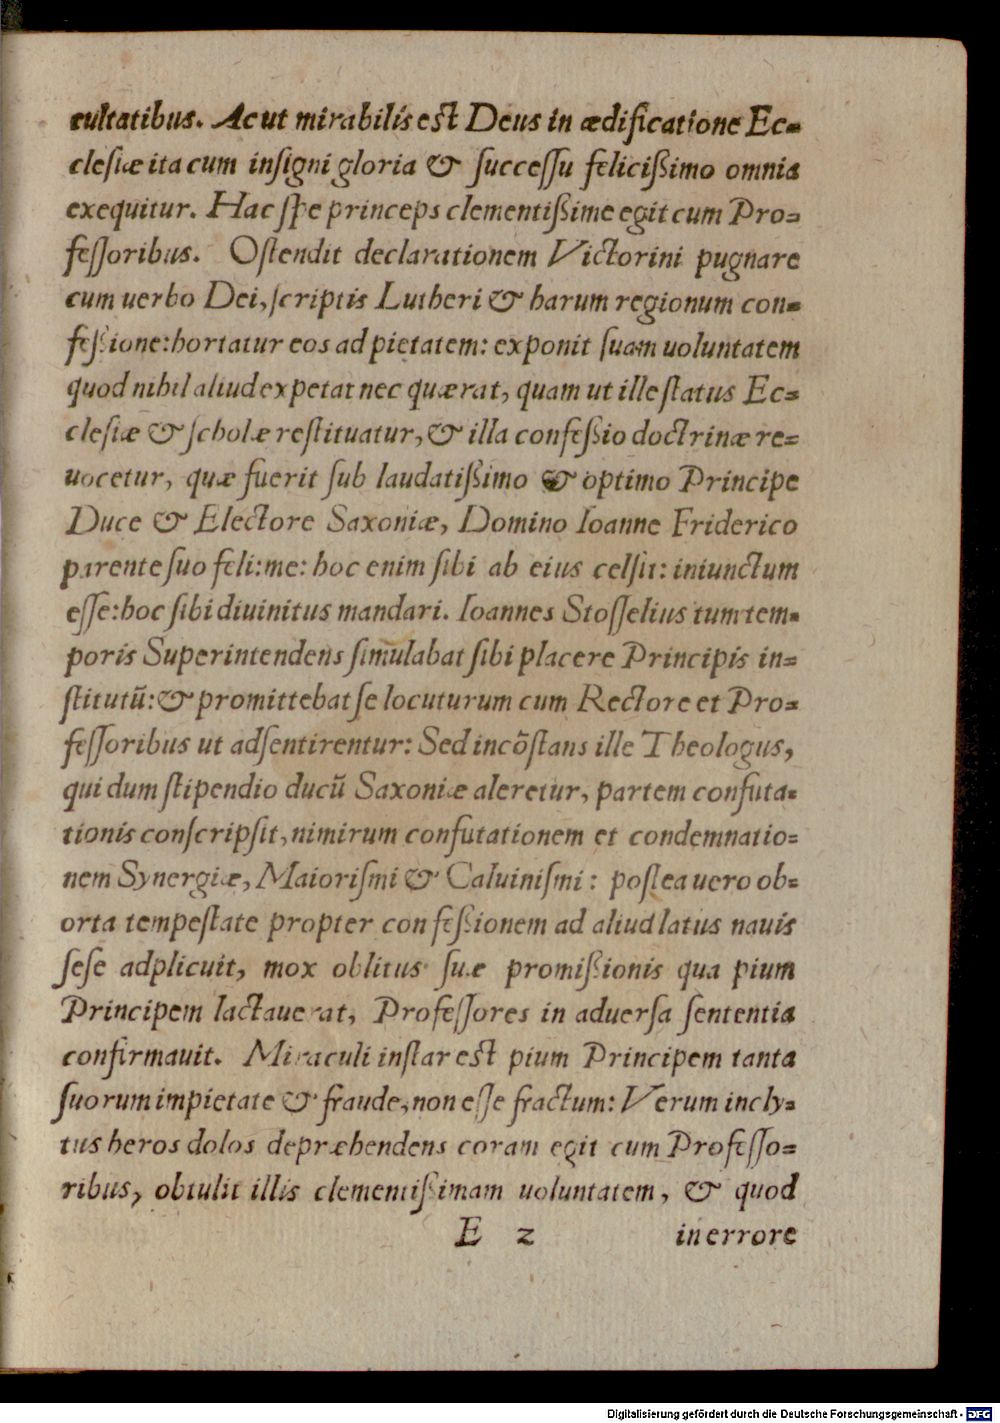 cultatibus. Ac ut mirabilis est Deus in ædificatione Ec-
clesiæ ita cum insigni gloria & successu felicißimo omnia
exequitur. Hac spe princeps clementißime egit cum Pro-
fessoribus. Ostendit declarationem Victorini pugnare
cum uerbo Dei, scriptis Lutheri & harum regionum con-
feßione: hortatur eos ad pietatem: exponit suam uoluntatem
quod nihil aliud expetat nec quærat, quam ut ille status Ec-
clesiæ & scholæ restituatur, & illa confeßio doctrinæ re-
uocetur, quæ fuerit sub laudatißimo & optimo Principe
Duce & Electore Saxoniæ, Domino Ioanne Friderico
parente suo feli: me: hoc enim sibi ab eius celsit: iniunctum
esse: hoc sibi diuinitus mandari. Ioannes Stosselius tum tem-
poris Superintendens simulabat sibi placere Principis in-
stitutũ: & promittebat se locuturum cum Rectore et Pro-
fessoribus ut adsentirentur: Sed incõstans ille Theologus,
qui dum stipendio ducũ Saxoniæ aleretur, partem confuta-
tionis conscripsit, nimirum confutationem et condemnatio-
nem Synergiæ, Maiorismi & Caluinismi: postea uero ob-
orta tempestate propter confeßionem ad aliud latus nauis
sese adplicuit, mox oblitus suæ promißionis qua pium
Principem lactauerat, Professores in aduersa sententia
confirmauit. Miraculi instar est pium Principem tanta
suorum impietate & fraude, non esse fractum: Verum incly-
tus heros dolos depræhendens coram egit cum Professo-
ribus, obtulit illis clementißimam uoluntatem, & quod
E 2 in errore
Digitalisierung gefördert durch die Deutsche Forschungsgemeinschaft - DFG